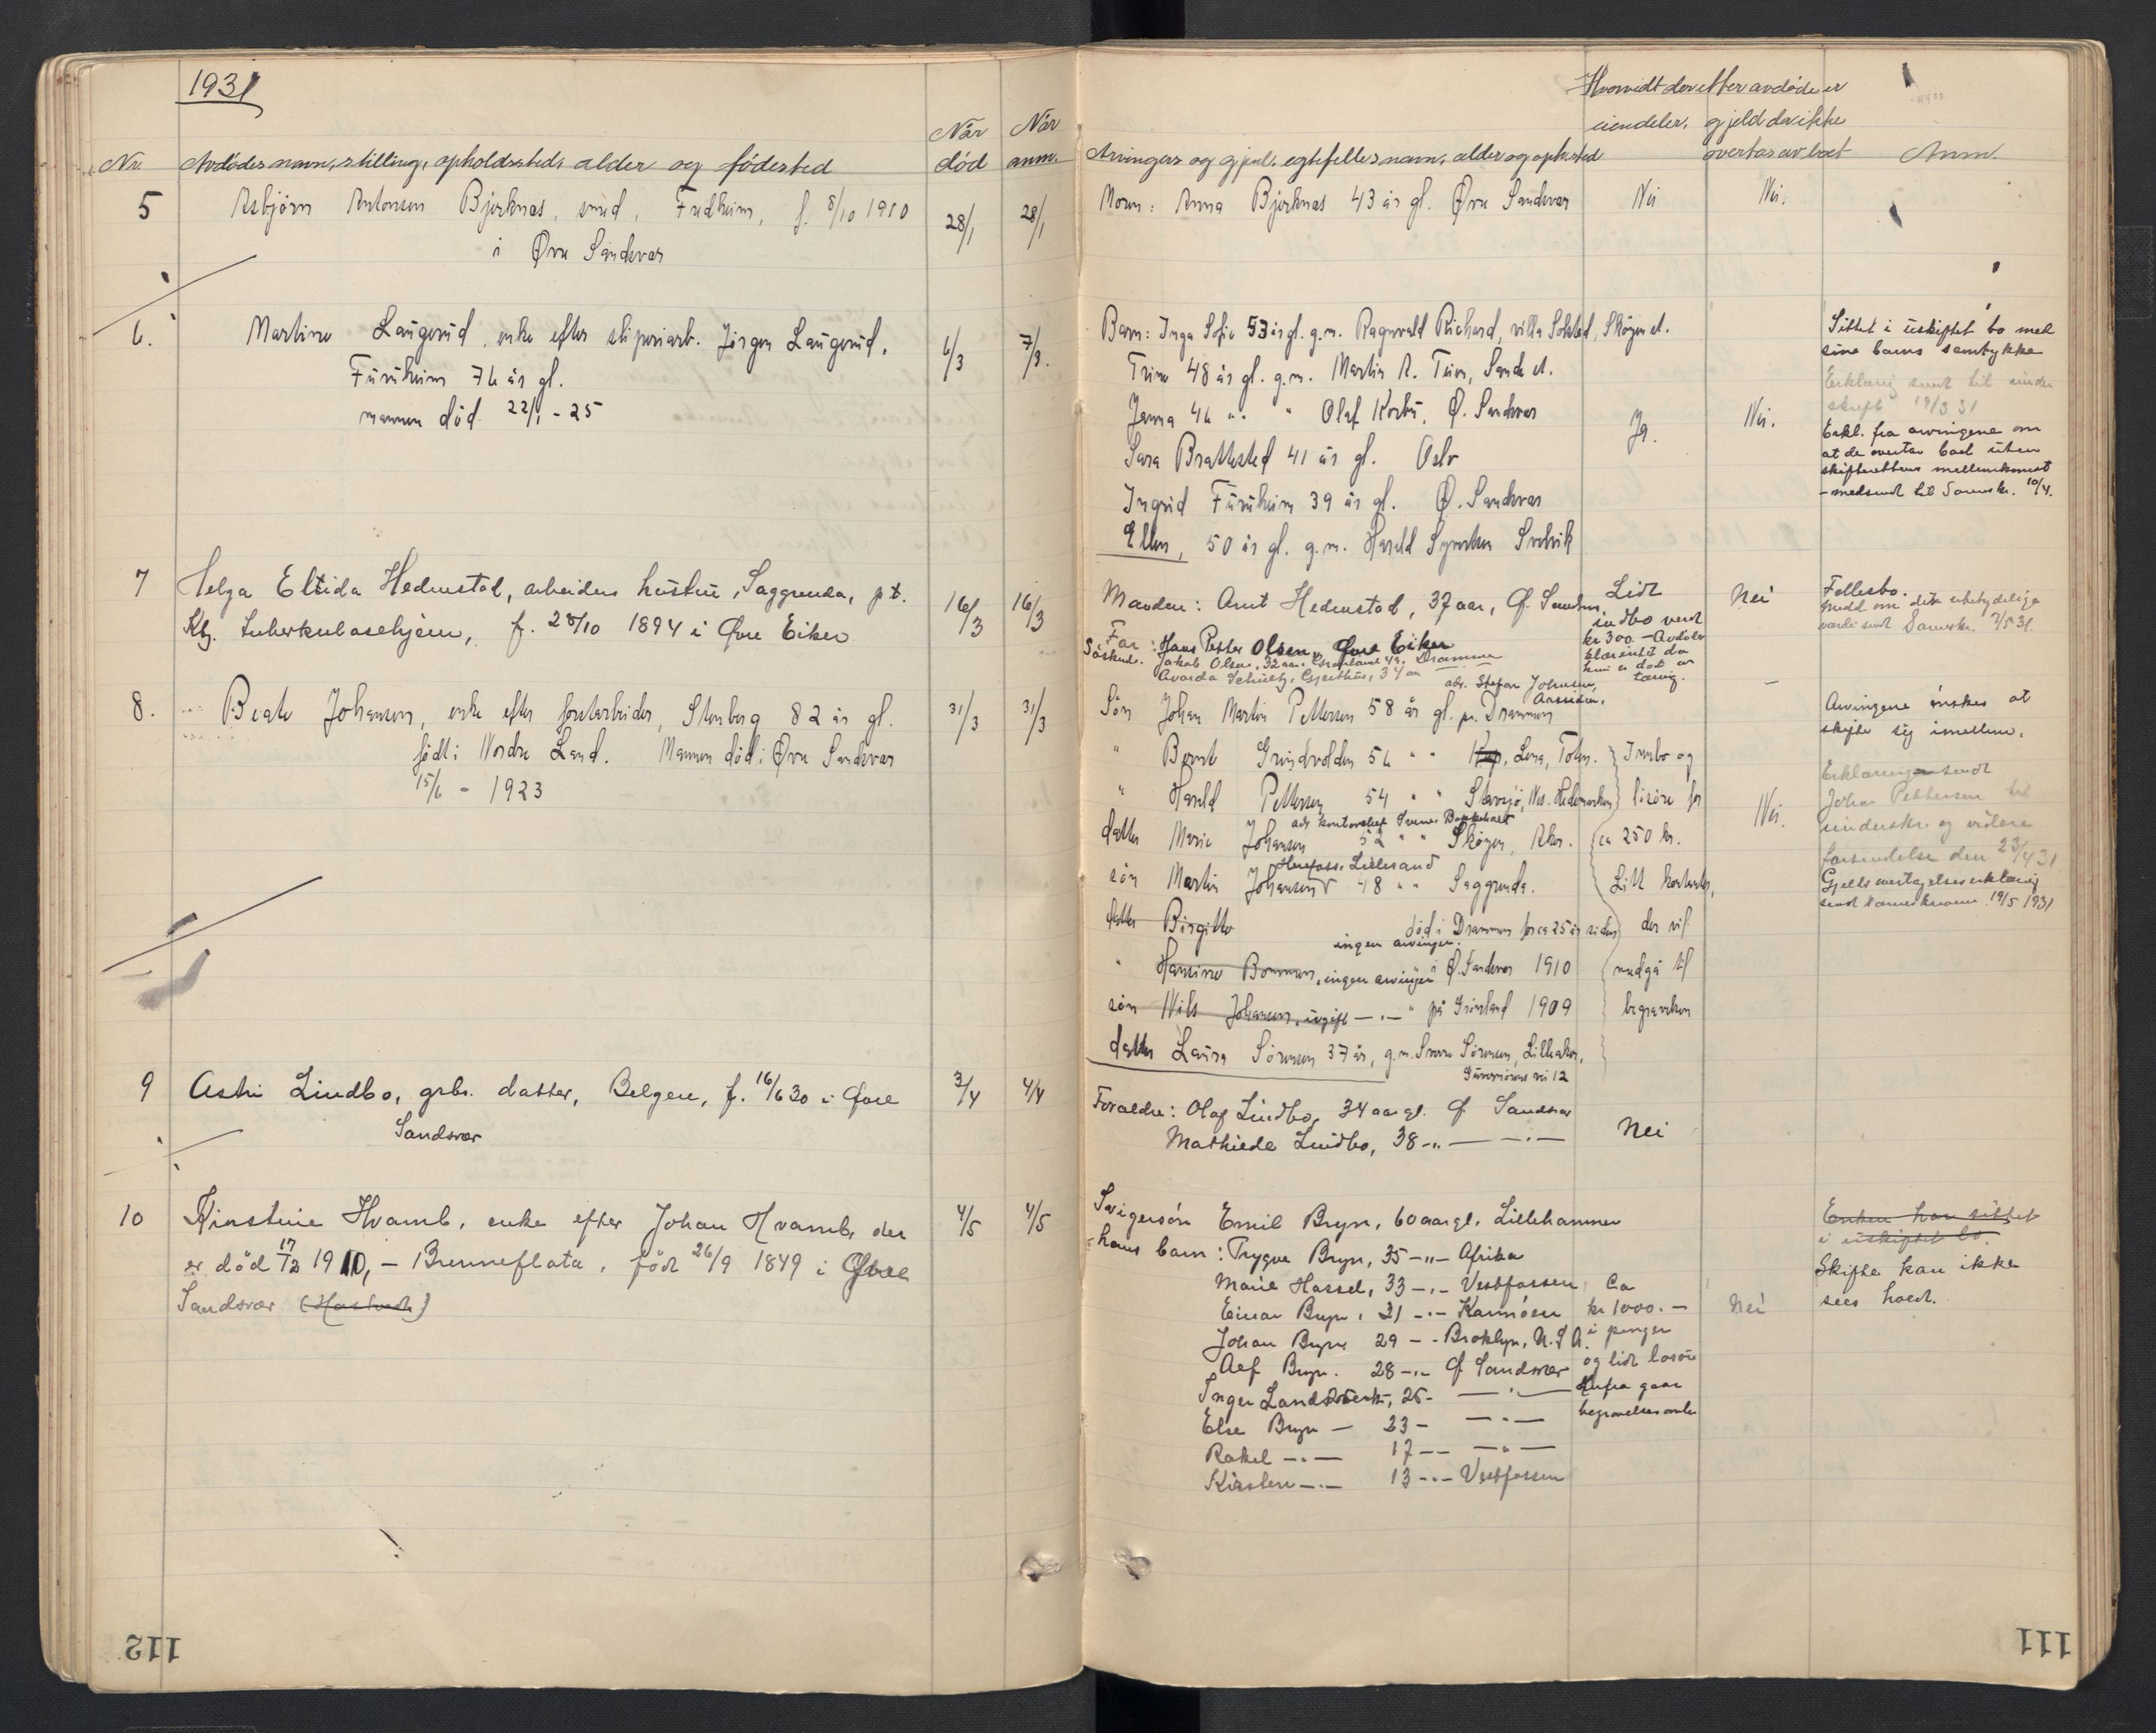 1931
Nr.
Avdödes navn, stilling, opholdssted, alder og födested
Når död
Når anm.
Arvingers og gjenl. egtefelles navn, alder og oph.sted
Hvorvidt der efter avdöde er
eiendeler.
gjeld der ikke
overtas av boet
Anm.
5
Asbjörn Antonsen Bjerknes, smed, Fredheim, f. 8/10 1910
i Øvre Sandsvær
28/1
28/1
Moren: Anna Bjerknes 43 år gl. Øvre Sandsvær
Nei
Nei.
6.
Martine Laugerud, enke efter sliperiarb. Jörgen Laugerud,
Furuheim 76 år gl.
mannen död 22/1 - 25
6/3
7/3.
Barn: Inga Sofie 53 år gl. g.m. Ragnvald Richard, villa Solstad, Skögen st.
Trine 48 år gl. g.m. Martin A. Teien, Sande st.
Jenna 46 " " " Olaf Korbö, Ø. Sandsvær
Sara Brattested 41 år gl. Oslo
Ingrid Furuheim 39 år gl. Ø. Sandsvær
Ellen, 50 år gl. g.m. Harald Syvertsen Svelvik
Ja.
Nei.
Sittet i uskiftet bo med
sine barns samtykke
Erklæring sendt til under
skrift 19/3 31
Erkl. fra arvingene om
at de overtar boet uten
skifterettens mellemkomst
- medsendt til Sorenskr. 10/4.
7
Helga Elvida Hedenstad, arbeiders hustru, Saggrenda, p.t.
Kbg. Tuberkulosehjem, f. 28/10 1894 i Øvre Eiker
16/3
16/3
Manden: Arnt Hedenstad, 37 aar, Ø. Sandsv.
Far: Hans Petter Olsen, Øvre Eiker
Söskend. Jakob Olsen, 32 aar, Grönland 49. Drammen
Avarda Schultz, Gjeithus, 34 aar
Lidt
indbo verd
kr 300. - Avdöde
klær intet da
hun er död av
tæring.
Nei
Fellesbo.
Medd om dets ubetydelige
værdi sendt Sorenskr. 2/5 31.
8.
Beate Johansen, enke efter forstarbeider, Stenberg 82 år gl.
född i Nordre Land. Mannen död i Øvre Sandsvær
15/6 - 1923
31/3
31/3
adr. Stefan Johnsen,
Sön Johan Martin Pettersen 58 år gl. pr. Drammen
" Bernt Grindvolden 56 " " Kap, Lena, Toten.
" Harald Pettersen 54 " " Stavsjö, Nes. Hedemarken
adr kontorchef Svenn Bakkehaet
datter Marie Johansen 52 " " Skögen, Aker.
Herefoss. Lillesand
sön Martin Johansen 48 " " Saggrenda.
datter Birgitte död i Drammen for ca 25 år siden
ingen arvinger.
" Hansine Bommen, ingen arvinger i Ø. Sandsvær 1910
sön Nils Johansen, ugift — " — " på Grönland 1909
datter Laura Sörensen 37 år, g.m. Sverre Sörensen, Lilleaker,
vei 12
Innbo og
lösöre for
ca 250 kr.
Litt kontanter,
der vil
medgå til
begravelsen
—
Nei.
Arvingene önsker at
skifte sig imellem.
Erklæring sendt
Johan Pettersen til
underskr. og videre
forsendelse den 23/4 31
Gjelds overtagelseserklæring
sendt sorenskriveren 19/5 1931
9
Astri Lindbo, grbr. datter, Belgen, f. 16/6 30 i Øvre
Sandsvær
3/4
4/4
Foraeldre: Olaf Lindbo, 34 aar gl. Ø Sandsvær
Mathilde Lindbo, 38 -"- — " —
Nei
10
Kirstine Hvamb, enke efter Johan Hvamb, der
er död 17/12 1910, - Brenneflata, född 26/9 1849 i Øvre
Sandsvær (Hostvedt)
4/5
4/5
Svigersön Emil Bryn, 60 aar gl. Lillehammer
hans barn: Trygve Bryn, 35 -"- Afrika
Marie Hassel, 33 -"- Vestfossen
Einar Bryn, 31 -"- Karmöen
Johan Bryn 29 - - Broklyn, U.S.A.
Alf Bryn. 28 -"- Ø Sandsvær
Inger Landsverk, 25 - — " —
Else Bryn - 23 - — " —
Rakel - " - 17 - - — " —
Kirsten - " - 13 - " - Vestfossen
Ca
kr 1000. -
i penger
og lidt lösöre
herfra gaar
begravelsesomk.
Nei
Enken har sittet
i uskiftet bo.
Skifte kan ikke
sees hævet.
112
111